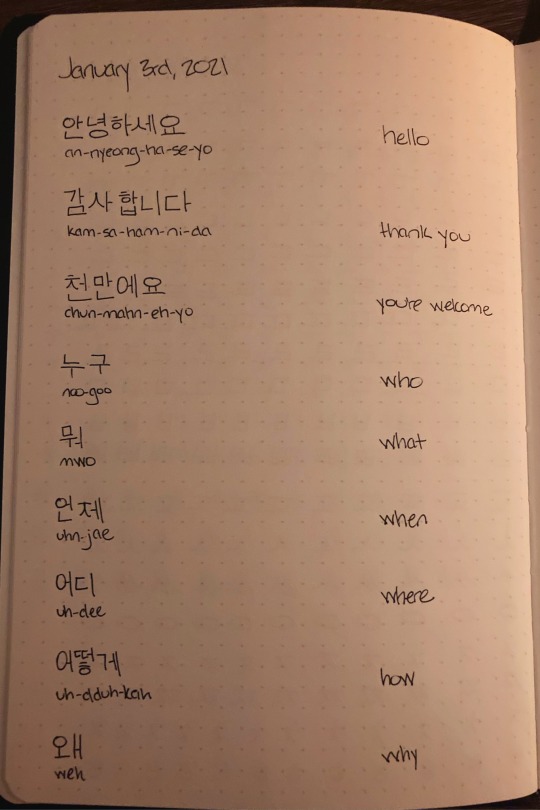 January 3rd, 2021
안녕하세요
an-nyeong-ha-se-yo
hello
감사합니다
kam-sa-ham-ni-da
thank you
천만에요
chun-mahn-eh-yo
you're welcome
누구
noo-goo
who
뭐
mwo
what
언제
uhn-jae
when
어디
uh-dee
where
어떻게
uh-dduh-kah
how
왜
weh
why